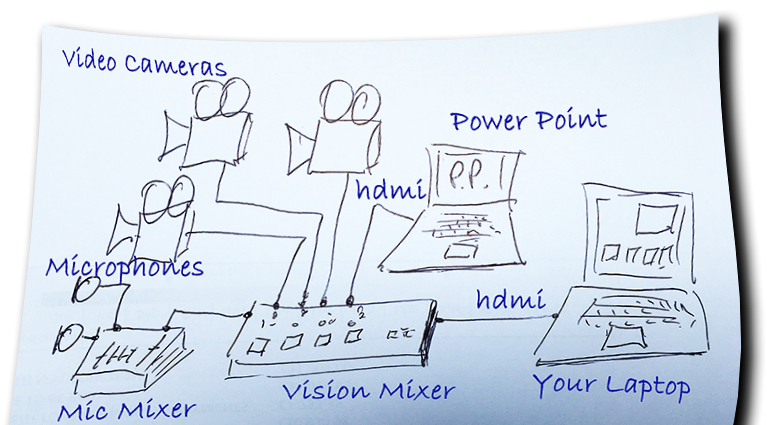 Video Cameras
Power Point
P.P.
hdmi
Microphones
hdmi
Vision Mixer
Your Laptop
Mic Mixer